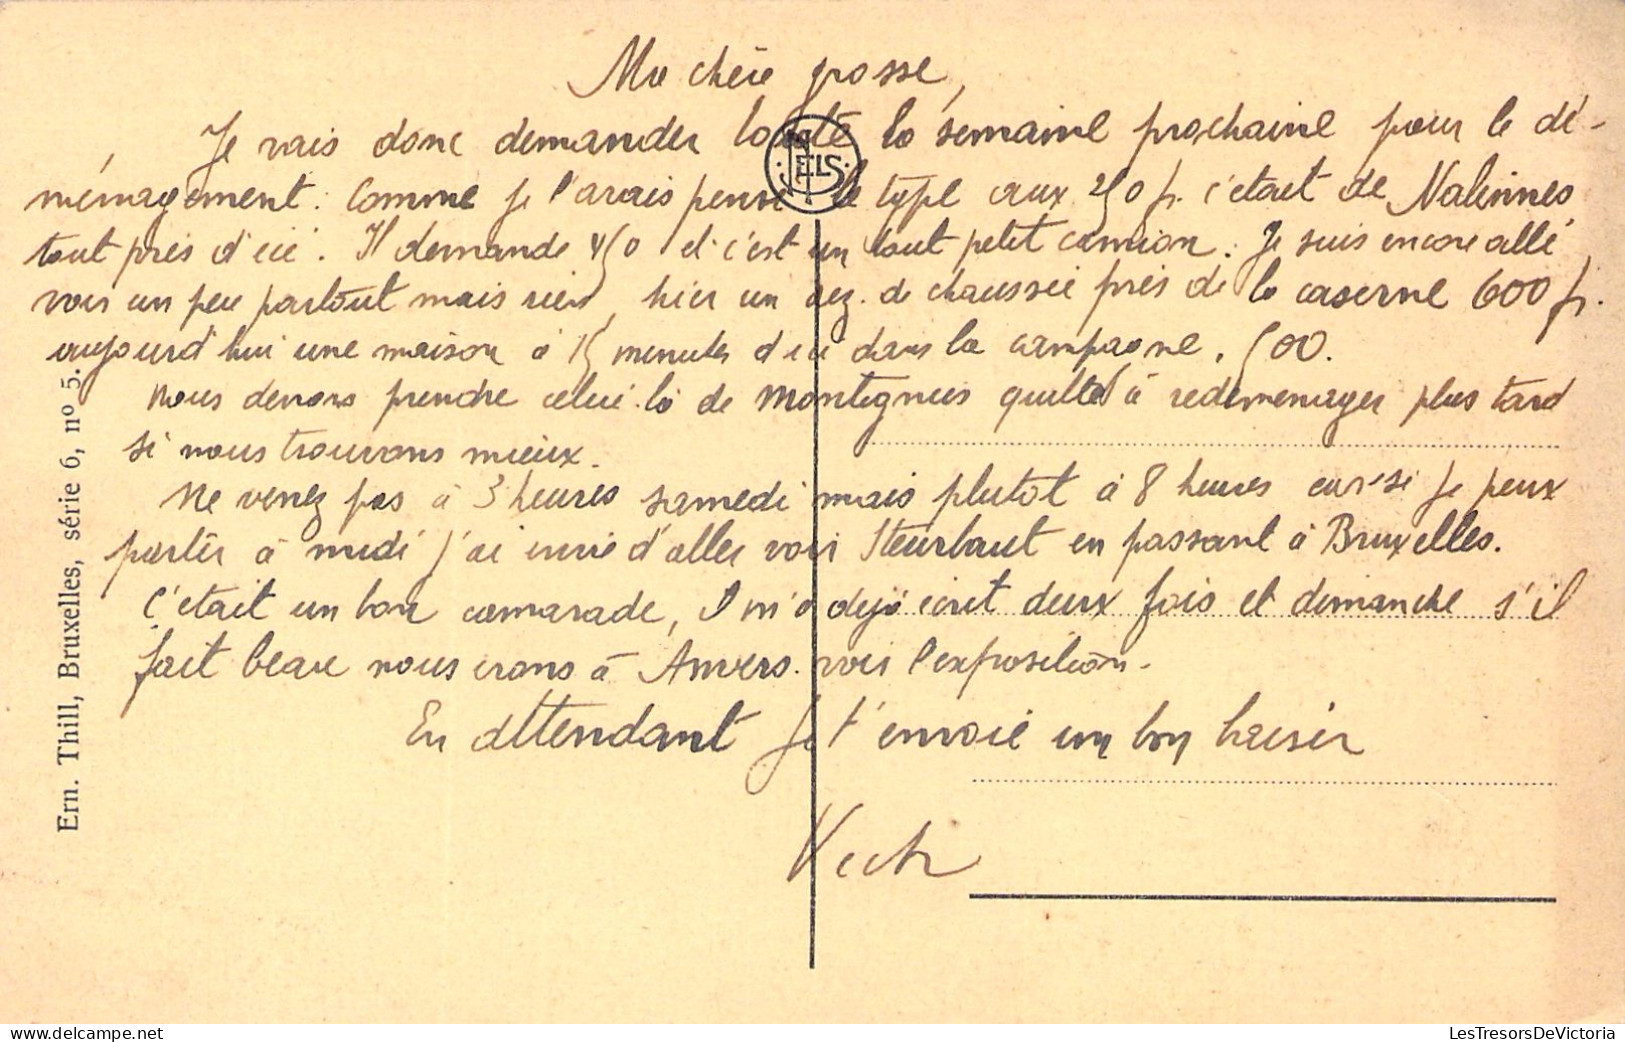 Ma chère gosse,
Je vais donc demander la semaine prochaine pour le dé-
ménagement. Comme je l'avais pensé le type aux 250 fr. c'etait de Nalinnes
tout près d'ici. Il demande 450 et c'est un tout petit camion. Je suis encore allé
voir un peu partout mais rien, hier un rez. de chaussée près de la caserne 600 fr.
aujourd'hui une maison à 15 minutes d'ici dans la campagne. 500.
Nous devons prendre celui-là de Montignies quitte à redemenager plus tard
si nous trouvons mieux.
Ne venez pas à 3 heures samedi mais plutot à 8 heures car si je peux
partir à midi j'ai envie d'aller voir en passant à Bruxelles.
C'était un bon camarade, Il m'a dejà écrit deux fois et dimanche s'il
fait beau nous irons à Anvers voir l'exposition.
En attendant Je t'envoie un bon baiser
NELS
Ern. Thill, Bruxelles, série 6, nº 5.
www.delcampe.net
LesTresorsDeVictoria